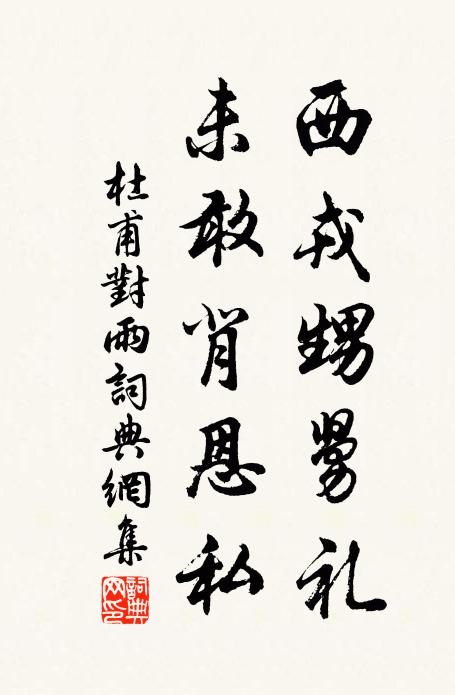 西戎甥舅礼
未敢背恩私
杜甫對雨詞典網集
詞典网印